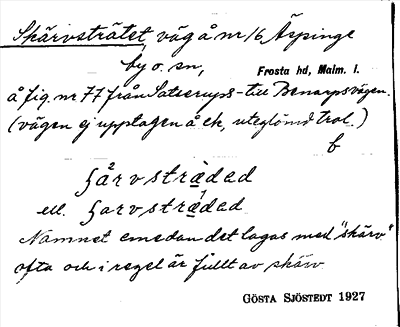 Skärvsträtet, väg å nr 16 Äspinge
by o. sn,
Frosta hd, Malm. l.
å fig. nr 77 från Satserups- till Benarpsvägen.
(vägen ej upptagen å ek, uteglömd trol.)
b
ʃårvsträdəd
ell. ʃarvsträdəd
Namnet emedan det lagas med "skärv"
ofta och i regel är fullt av skärv
GÖSTA SJÖSTEDT 1927